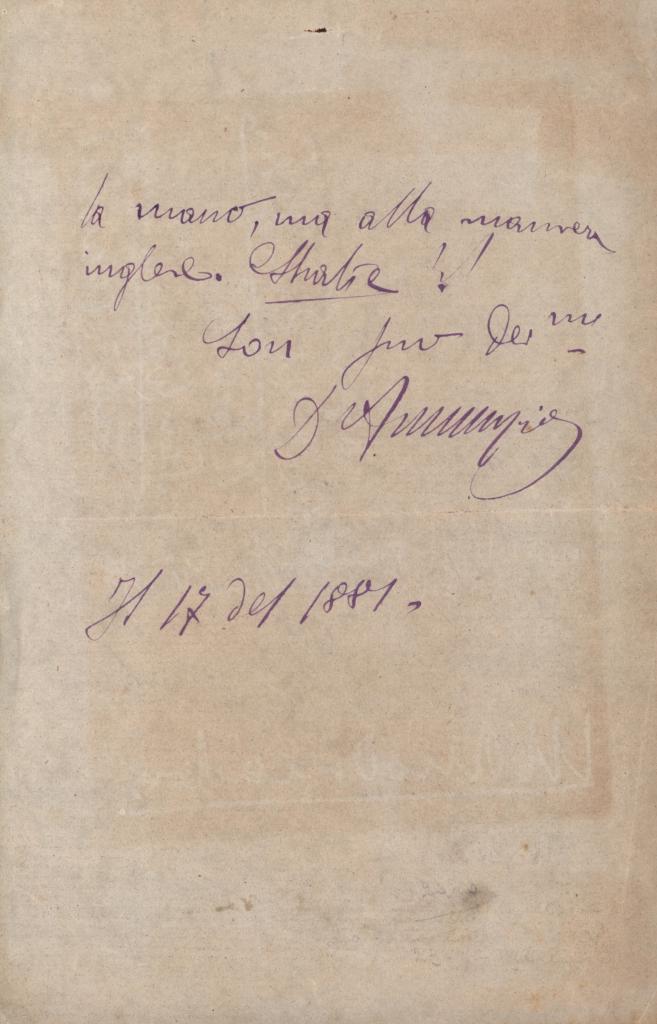 la mano, ma alla maniera
inglese. Shake !!
Son suo dev.mo
D'Annunzio
Il 17 del 1881.